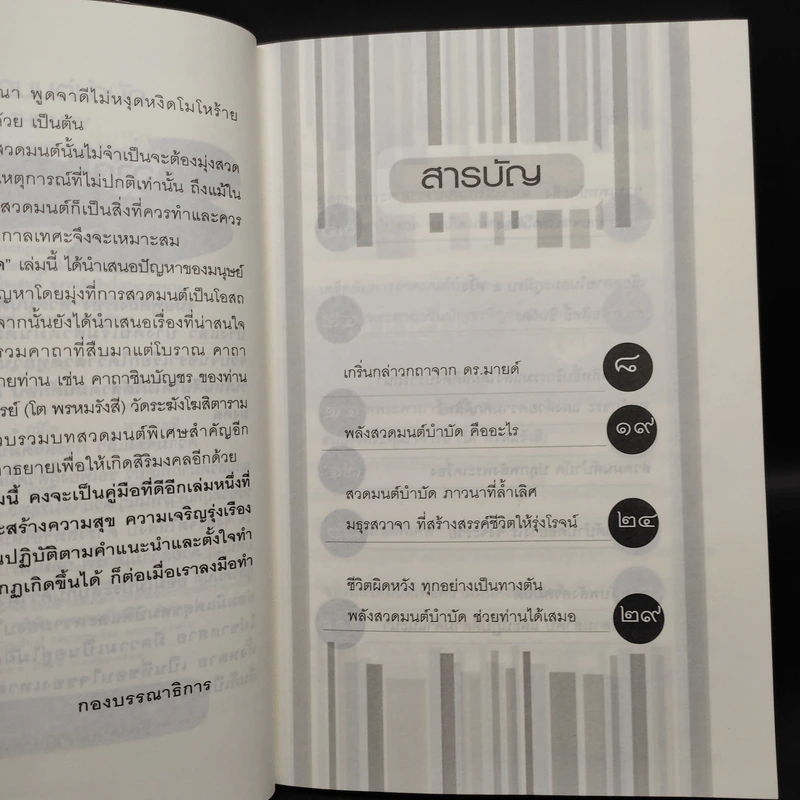 พูดจาดีไม่หงุดหงิดโมโหร้าย
เป็นต้น
สวดมนต์นั้นไม่จำเป็นจะต้องมุ่งสวด
เหตุการณ์ที่ไม่ปกติเท่านั้น ถึงแม้ใน
สวดมนต์ก็เป็นสิ่งที่ควรทำและควร
กาลเทศะจึงจะเหมาะสม
เล่มนี้ ได้นำเสนอปัญหาของมนุษย์
โดยมุ่งที่การสวดมนต์เป็นโอสถ
จากนั้นยังได้นำเสนอเรื่องที่น่าสนใจ
รวมคาถาที่สืบมาแต่โบราณ คาถา
ท่าน เช่น คาถาชินบัญชร ของท่าน
(โต พรหมรังสี) วัดระฆังโฆสิตาราม
บทสวดมนต์พิเศษสำคัญอีก
เพื่อให้เกิดสิริมงคลอีกด้วย
คงจะเป็นคู่มือที่ดีอีกเล่มหนึ่งที่
สร้างความสุข ความเจริญรุ่งเรือง
ปฏิบัติตามคำแนะนำและตั้งใจทำ
เกิดขึ้นได้ ก็ต่อเมื่อเราลงมือทำ
กองบรรณาธิการ
สารบัญ
เกริ่นกล่าวกถาจาก ดร.มายด์ ๘
พลังสวดมนต์บำบัด คืออะไร ๑๙
สวดมนต์บำบัด ภาวนาที่ล้ำเลิศ
มธุรสวาจา ที่สร้างสรรค์ชีวิตให้รุ่งโรจน์ ๒๔
ชีวิตผิดหวัง ทุกอย่างเป็นทางตัน
พลังสวดมนต์บำบัด ช่วยท่านได้เสมอ ๒๙